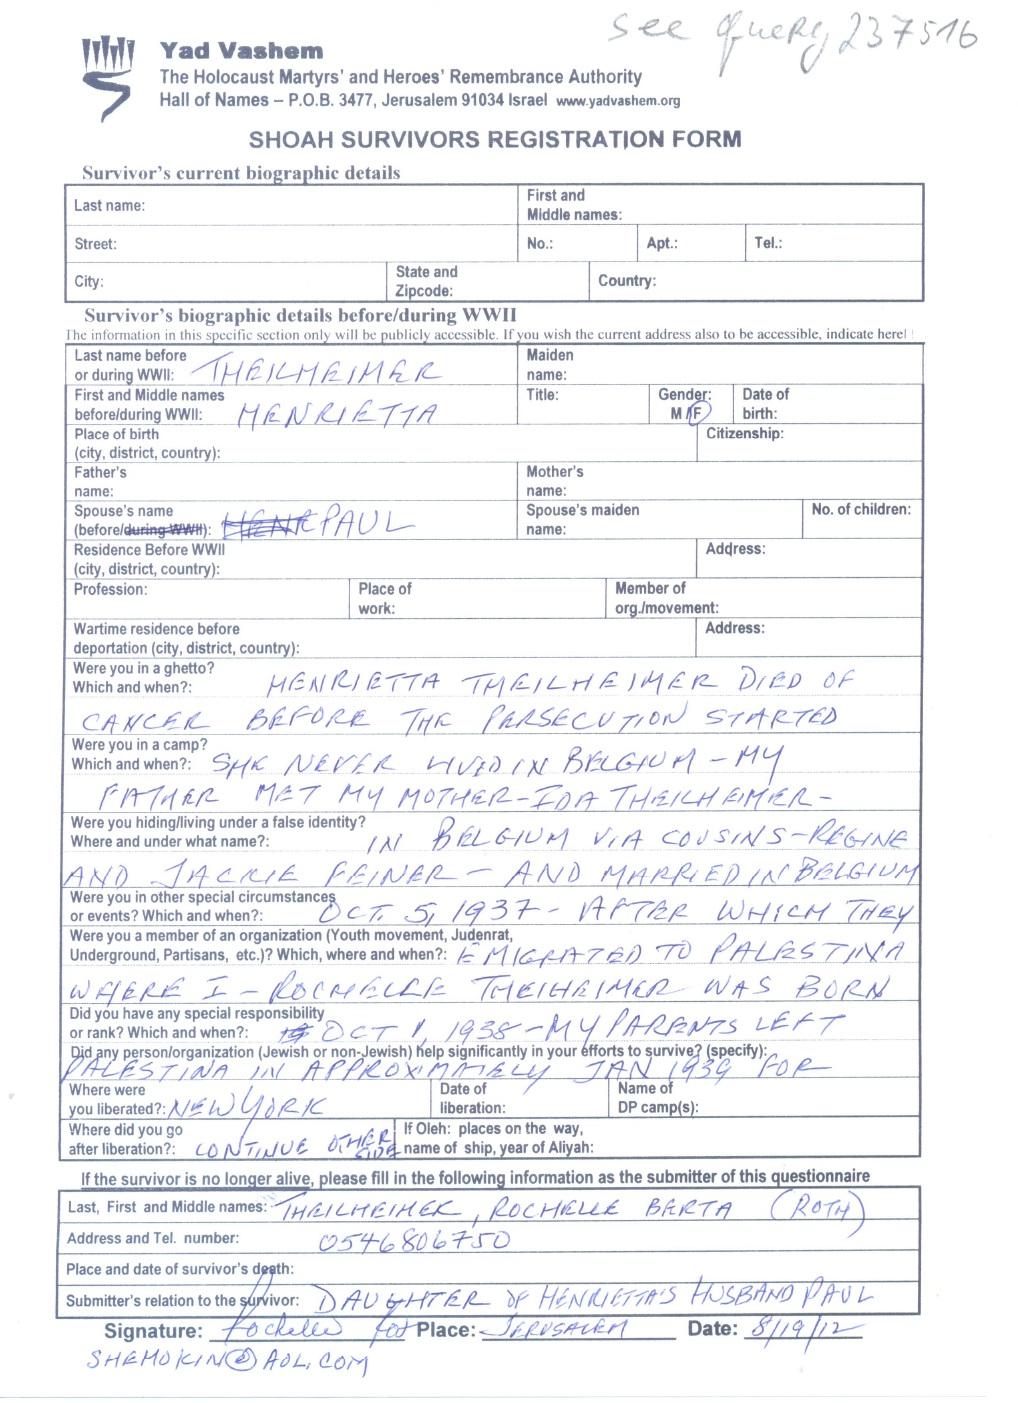 see query 237516
Yad Vashem
The Holocaust Martyrs' and Heroes' Remembrance Authority
Hall of Names – P.O.B. 3477, Jerusalem 91034 Israel www.yadvashem.org
SHOAH SURVIVORS REGISTRATION FORM
Survivor's current biographic details
Last name: First and Middle names:
Street: No.: Apt.: Tel.:
City: State and Zipcode: Country:
Survivor's biographic details before/during WWII
The information in this specific section only will be publicly accessible. If you wish the current address also to be accessible, indicate here!
Last name before or during WWII: THEILHEIMER Maiden name:
First and Middle names before/during WWII: HENRIETTA Title: Gender: M/F Date of birth:
Place of birth (city, district, country): Citizenship:
Father's name: Mother's name:
Spouse's name (before/during WWII): PAUL Spouse's maiden name: No. of children:
Residence Before WWII (city, district, country): Address:
Profession: Place of work: Member of org./movement:
Wartime residence before deportation (city, district, country): Address:
Were you in a ghetto?
Which and when?: HENRIETTA THEILHEIMER DIED OF
CANCER BEFORE THE PERSECUTION STARTED
Were you in a camp?
Which and when?: SHE NEVER LIVED IN BELGIUM – MY
FATHER MET MY MOTHER – IDA THEILHEIMER –
Were you hiding/living under a false identity?
Where and under what name?: IN BELGIUM VIA COUSINS – REGINE
AND JACKIE FEINER – AND MARRIED IN BELGIUM
Were you in other special circumstances
or events? Which and when?: OCT. 5, 1937 – AFTER WHICH THEY
Were you a member of an organization (Youth movement, Judenrat,
Underground, Partisans, etc.)? Which, where and when?: EMIGRATED TO PALESTINA
WHERE I – ROCHELLE THEILHEIMER WAS BORN
Did you have any special responsibility
or rank? Which and when?: OCT 1, 1938 – MY PARENTS LEFT
Did any person/organization (Jewish or non-Jewish) help significantly in your efforts to survive? (specify):
PALESTINA IN APPROXIMATELY JAN 1939 FOR
Where were you liberated?: NEW YORK Date of liberation: Name of DP camp(s):
Where did you go after liberation?: CONTINUE OTHER SIDE If Oleh: places on the way, name of ship, year of Aliyah:
If the survivor is no longer alive, please fill in the following information as the submitter of this questionnaire
Last, First and Middle names: THEILHEIMER, ROCHELLE BERTA (ROTH)
Address and Tel. number: 0546806750
Place and date of survivor's death:
Submitter's relation to the survivor: DAUGHTER OF HENRIETTA'S HUSBAND PAUL
Signature: Rochelle Place: JERUSALEM Date: 8/19/12
SHEMOKIN@AOL.COM